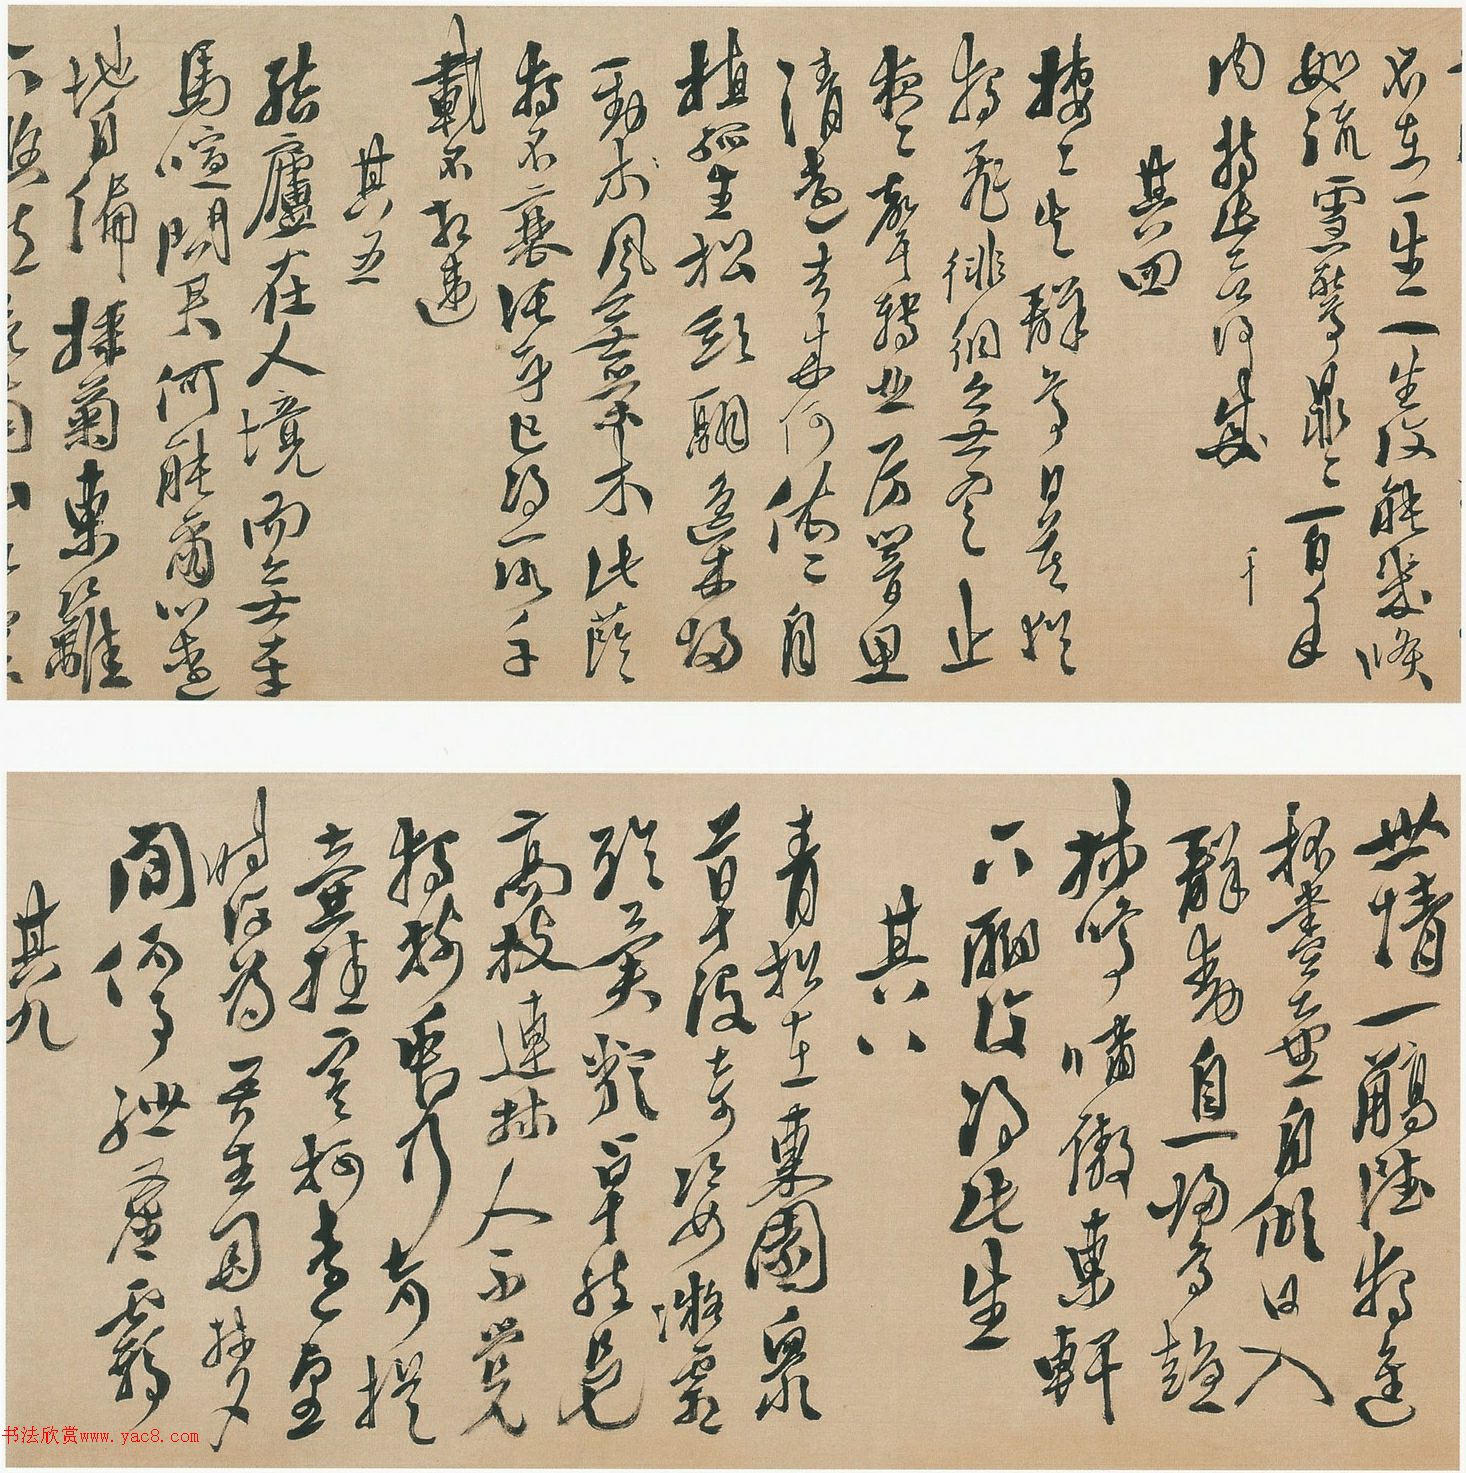 不在一生一生復能幾倏
如流電驚鼎〻百年
內持此欲何成
其四
栖〻失群鳥日暮猶
獨飛徘徊無定止
夜〻聲轉悲厲響思
清遠去來何依〻自
植孤生松斂翮遙來歸
勁木風無榮木此蔭
獨不衰託身已得所千
載不相違
其五
結廬在人境而無車
馬喧問君何能爾心遠
地自偏採菊東籬
世情一觴雖獨進
杯盡壺自傾日入
群動息歸鳥趨
林鳴嘯傲東軒
下聊復得此生
其八
青松在東園眾
草沒奇姿凝霜
殄異類卓然見
高枝連林人不覺
獨樹眾乃奇提
壺挂寒柯遠望
時復為吾生夢
間何事紲塵羈
其九
书法欣赏www.yac8.com